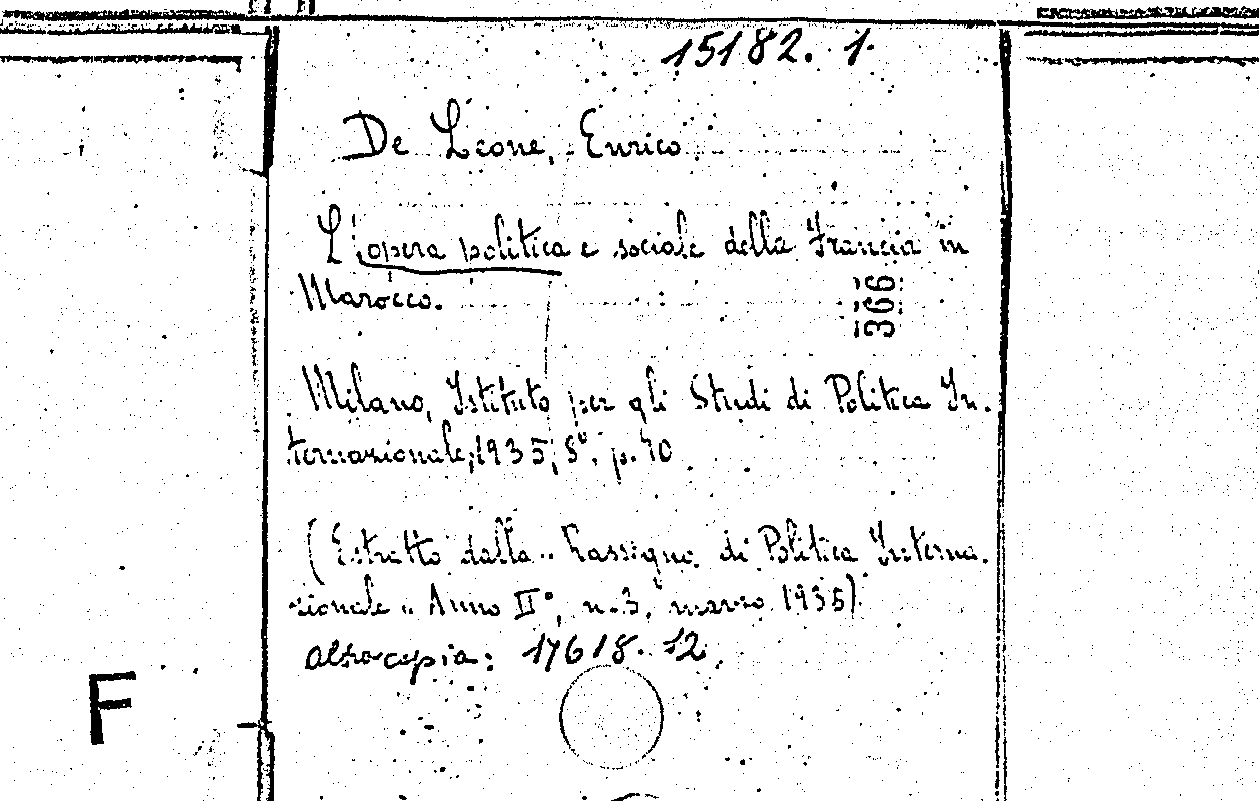 15182. 1.
De Leone, Enrico.
L'opera politica e sociale della Francia in
Marocco.
366
Milano, Istituto per gli Studi di Politica In-
ternazionale, 1935, 8°, p. 40
(Estratto dalla "Rassegna di Politica Interna-
zionale" Anno II°, n. 3, marzo 1935).
Altra copia: 17618. 12.
F